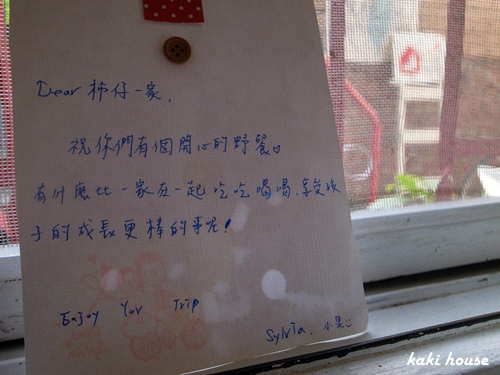 Dear 柿仔一家,
祝你們有個開心的野餐
有什麼比一家在一起吃吃喝喝、享受孩
子的成長更棒的事呢!
Enjoy Yor Trip
Sylvia. 小
kaki house